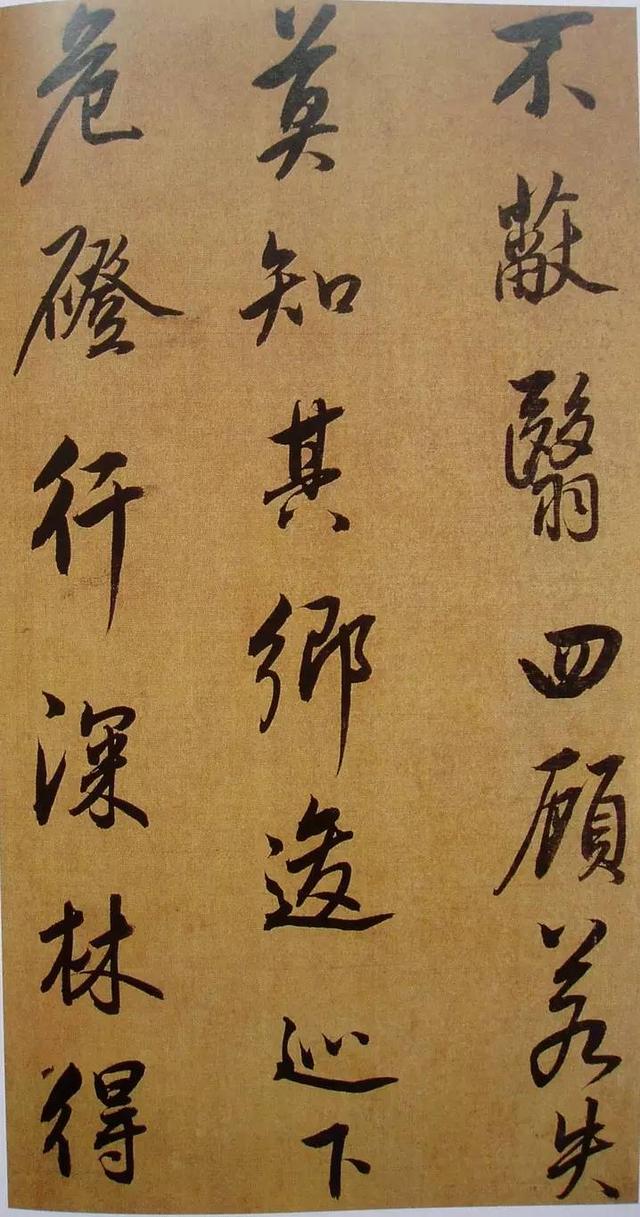 不蔽翳四顾若失
莫知其鄉逡巡下
危磴行深林得